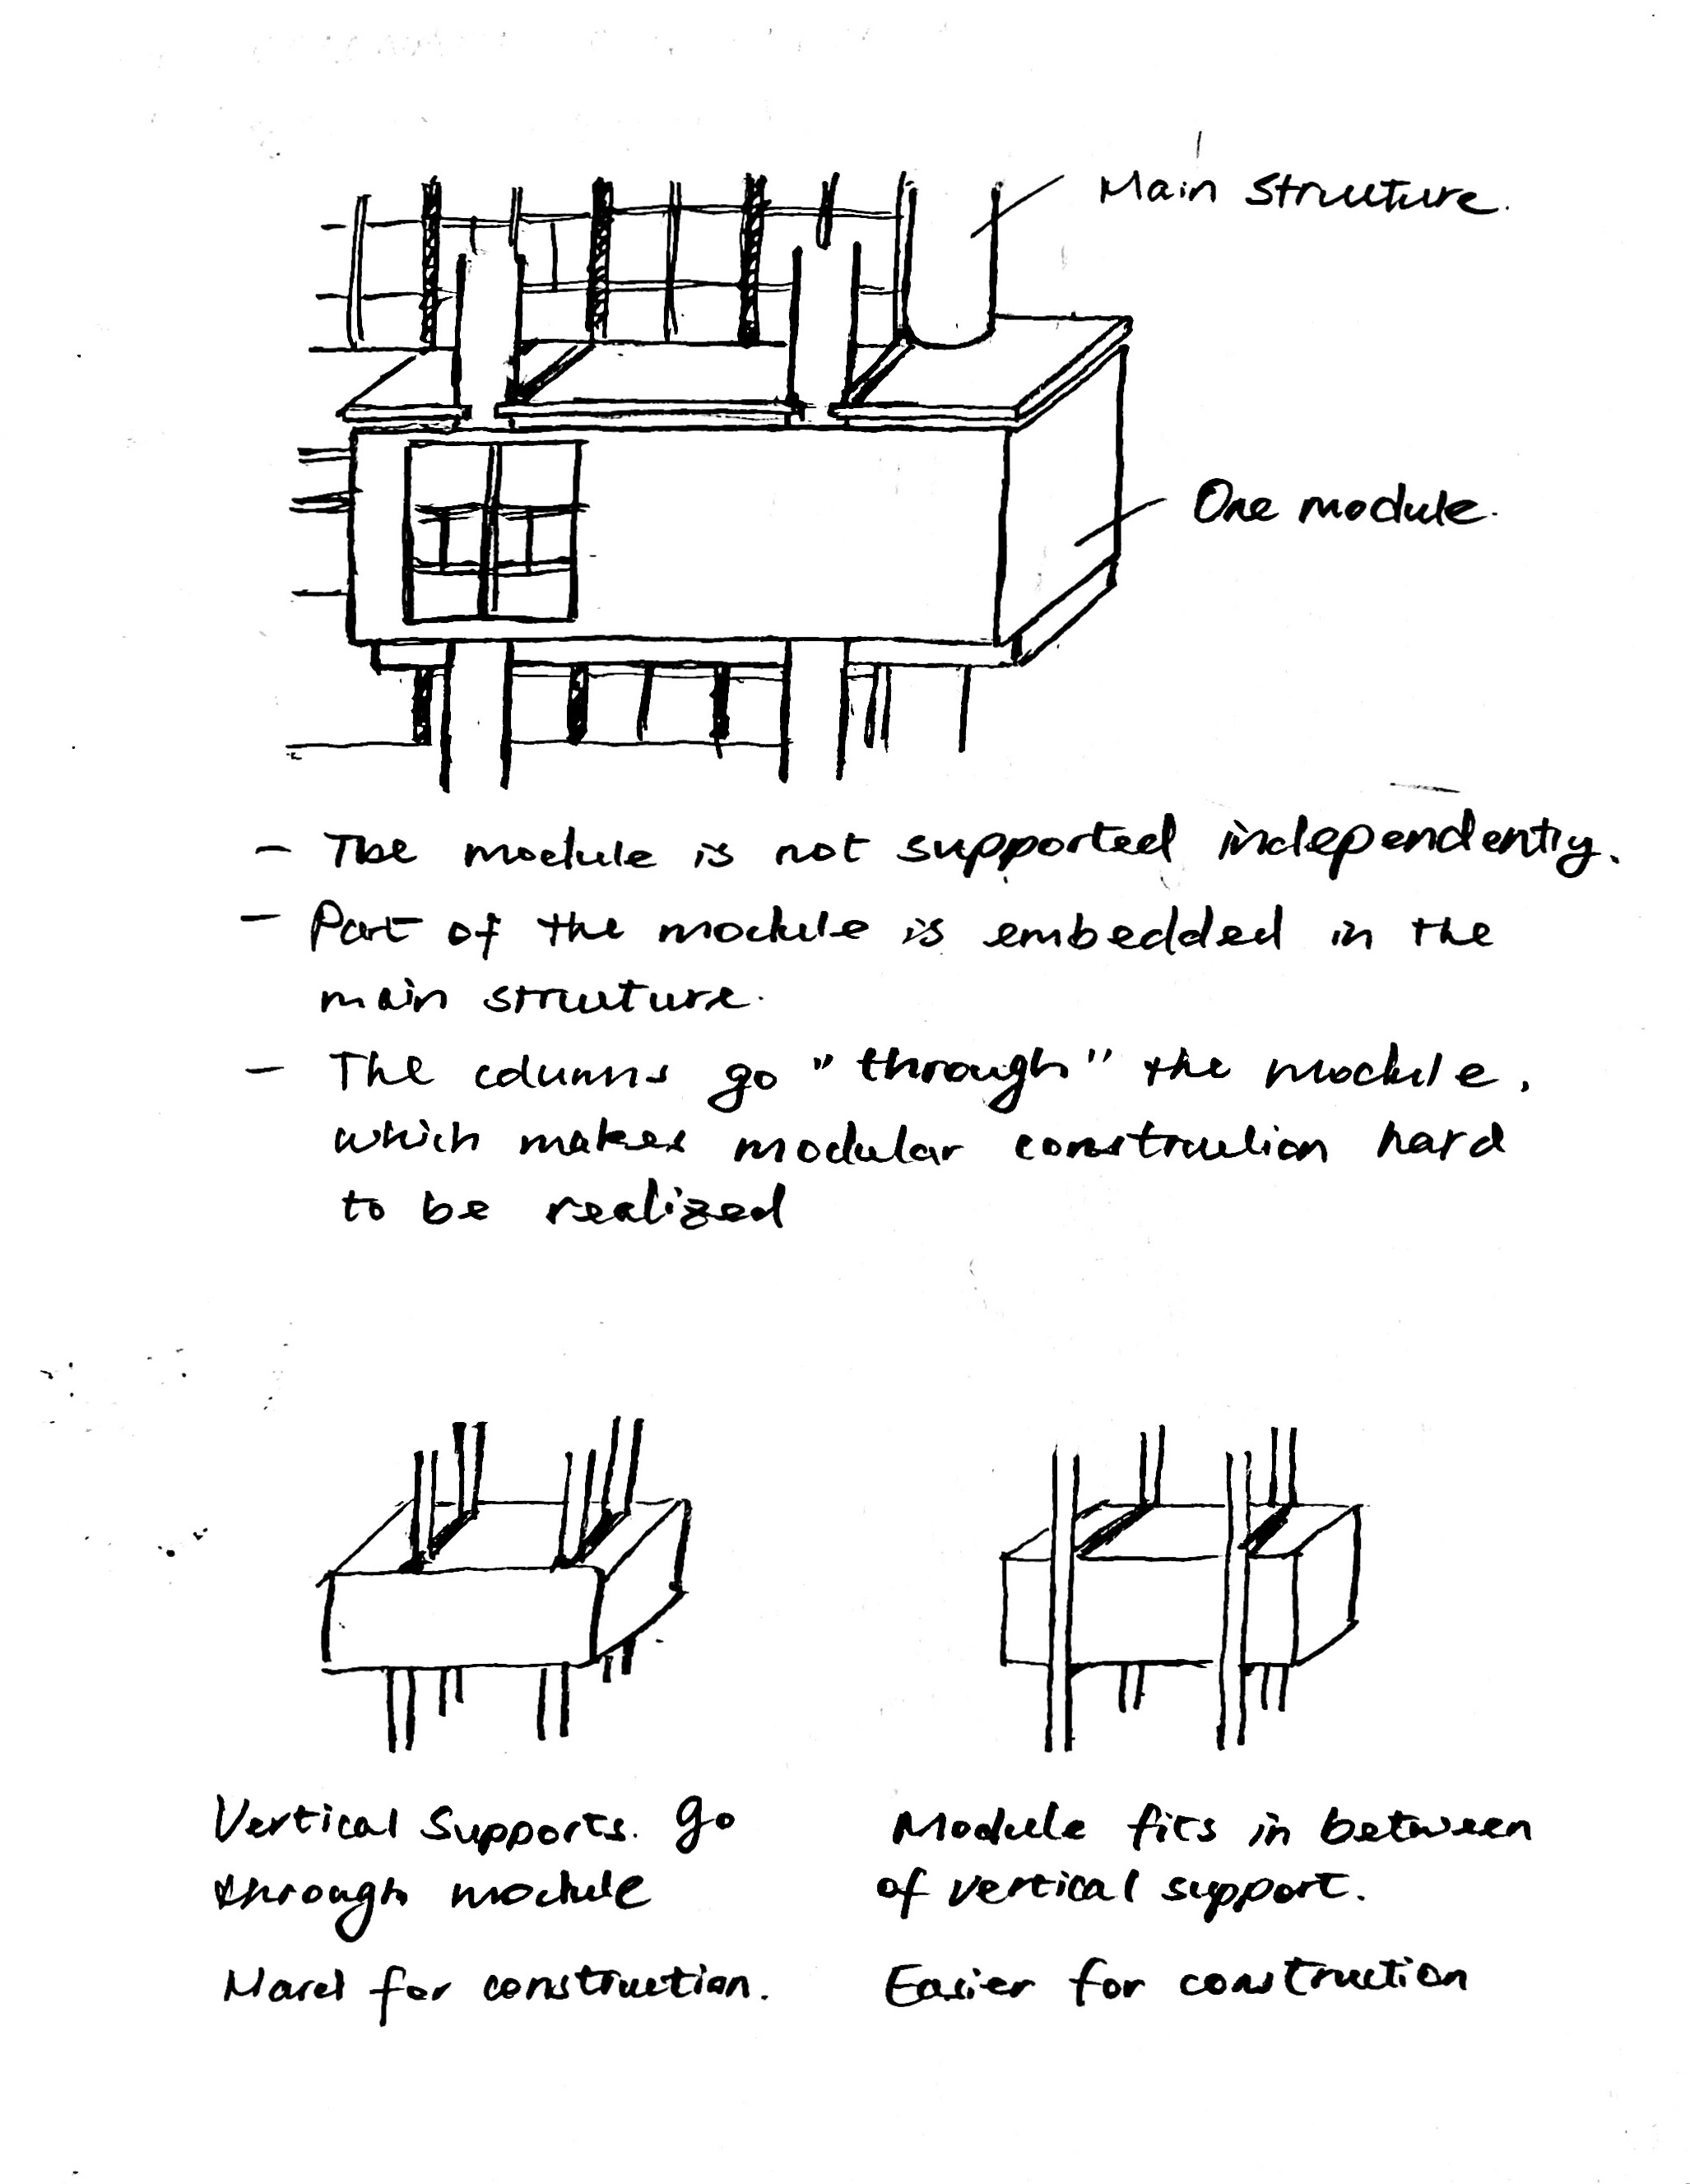 Main Structure.
One module.
- The module is not supported independently.
- Part of the module is embedded in the
main structure.
- The columns go "through" the module,
which makes modular construction hard
to be realized
Vertical Supports. go
through module
Hard for construction.
Module fits in between
of vertical support.
Easier for construction